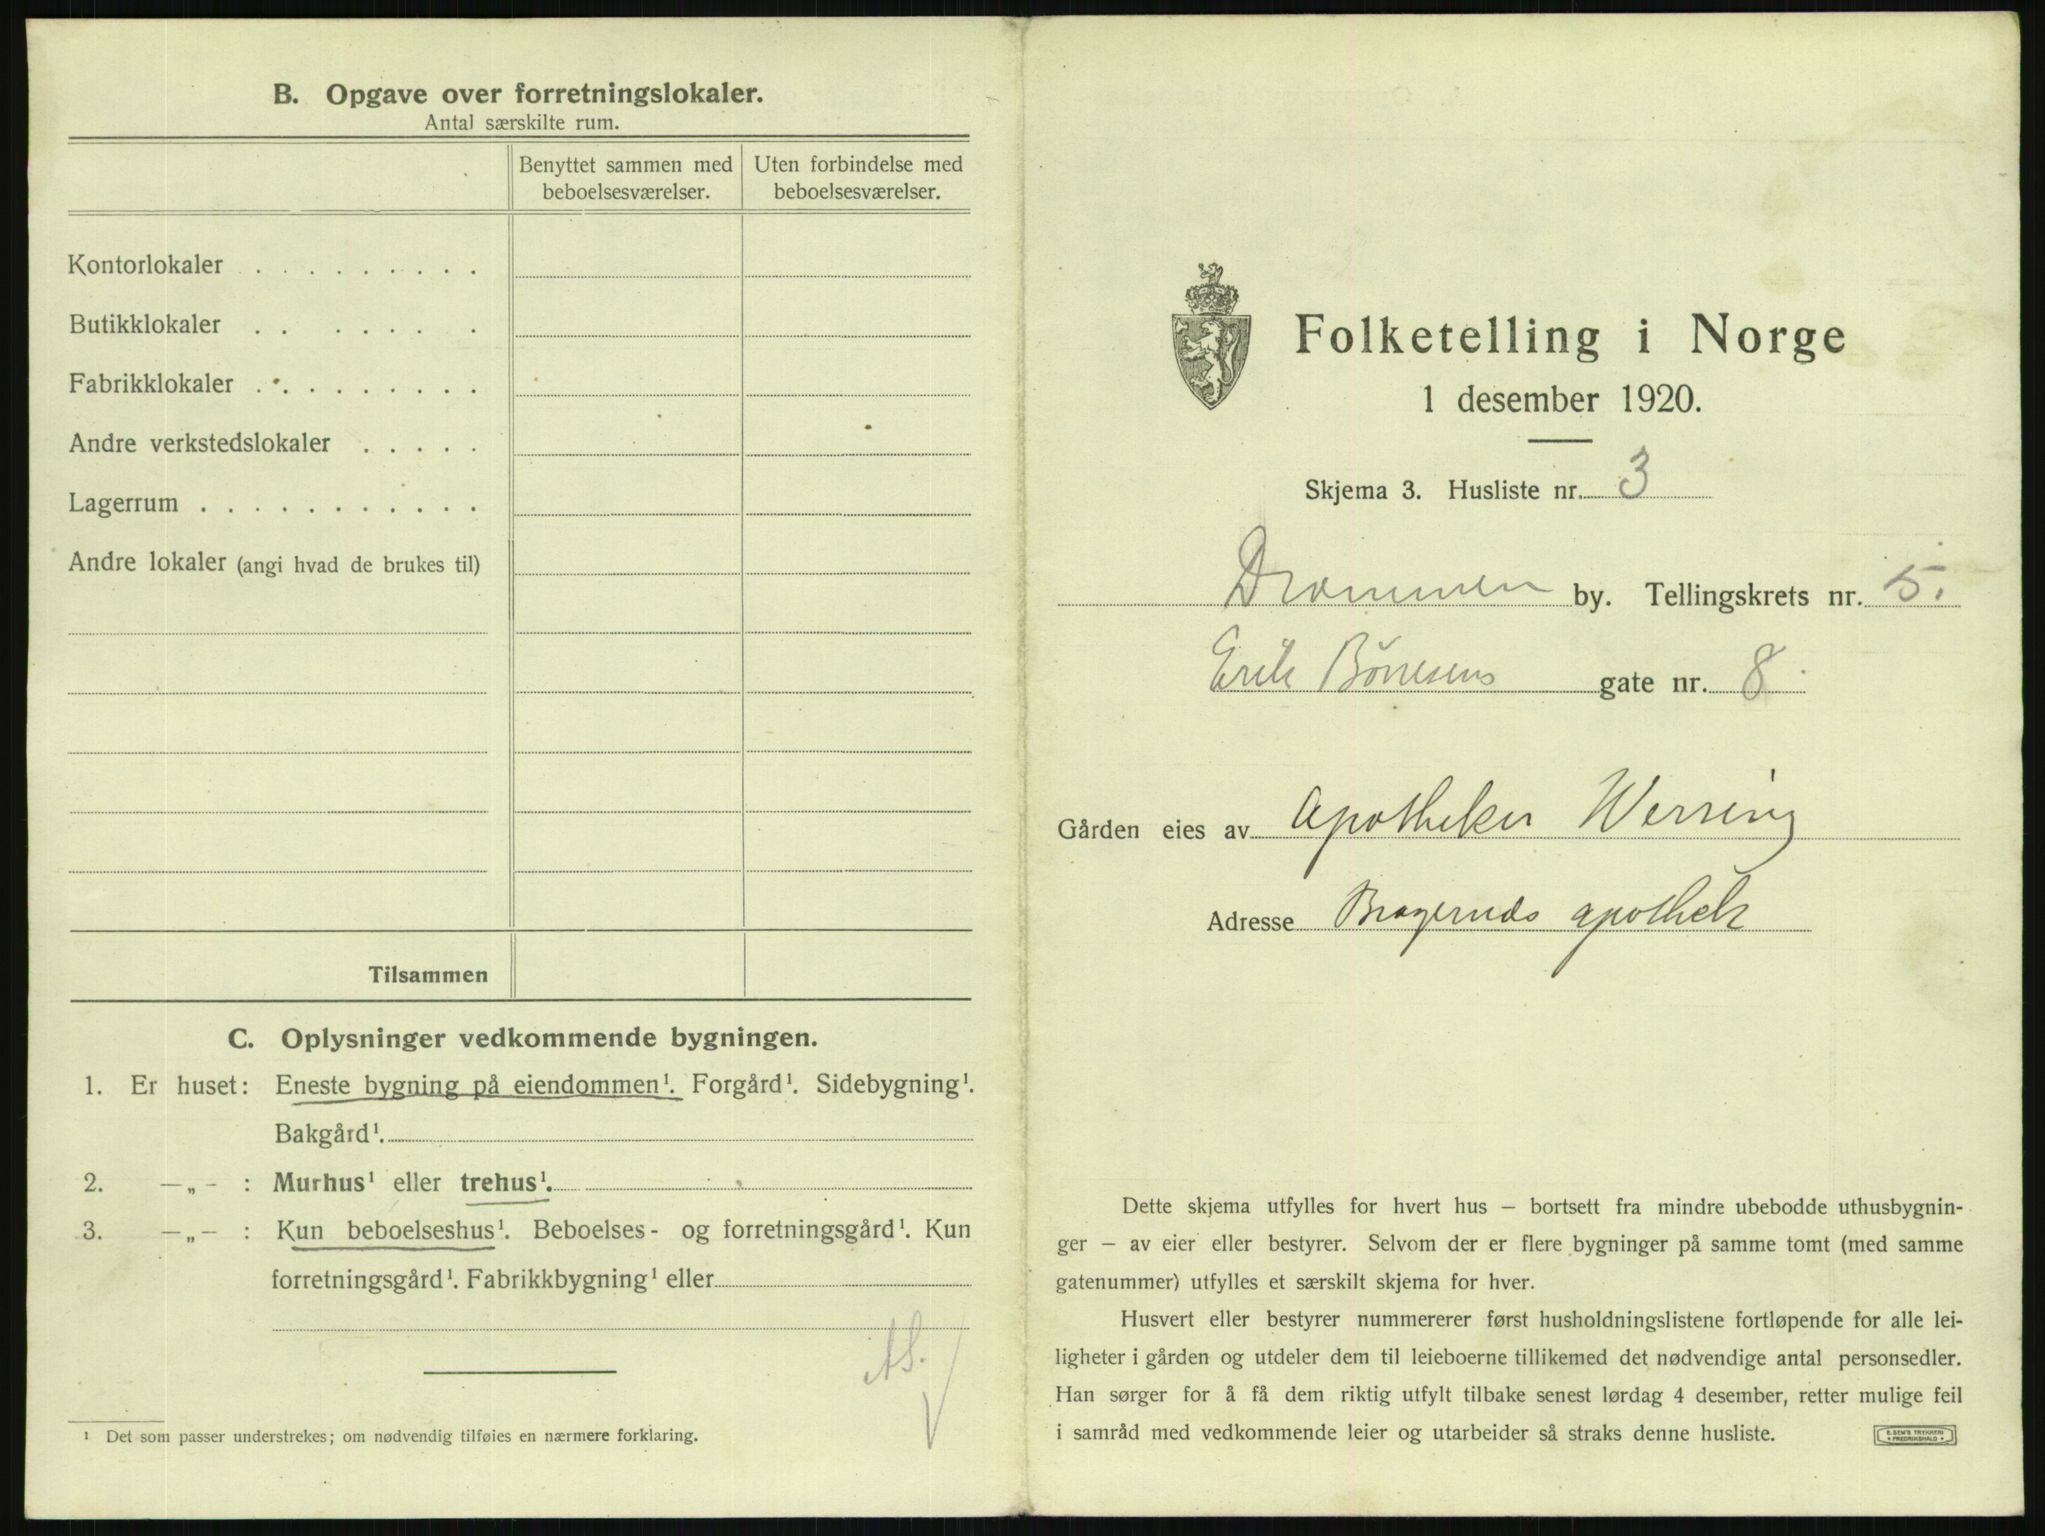 B. Opgave over forretningslokaler.
Antal særskilte rum.
Benyttet sammen med beboelsesværelser.
Uten forbindelse med beboelsesværelser.
Kontorlokaler . . . . . . . . .
Butikklokaler . . . . . . .
Fabrikklokaler . . . . . . . . .
Andre verkstedslokaler . . . . .
Lagerrum . . . . . . . . . . .
Andre lokaler (angi hvad de brukes til)
Tilsammen
C. Oplysninger vedkommende bygningen.
1. Er huset: Eneste bygning på eiendommen¹. Forgård¹. Sidebygning¹.
Bakgård¹.
2. —„— : Murhus¹ eller trehus¹.
3. —„— : Kun beboelseshus¹. Beboelses- og forretningsgård¹. Kun
forretningsgård¹. Fabrikkbygning¹ eller
AS.
¹ Det som passer understrekes; om nødvendig tilføies en nærmere forklaring.
Folketelling i Norge
1 desember 1920.
Skjema 3. Husliste nr. 3
Drammen by. Tellingskrets nr. 5.
Erik Børresens gate nr. 8
Gården eies av Apotheker Werring
Adresse Bragernes apothek
Dette skjema utfylles for hvert hus – bortsett fra mindre ubebodde uthusbygnin-
ger – av eier eller bestyrer. Selvom der er flere bygninger på samme tomt (med samme
gatenummer) utfylles et særskilt skjema for hver.
Husvert eller bestyrer nummererer først husholdningslistene fortløpende for alle lei-
ligheter i gården og utdeler dem til leieboerne tillikemed det nødvendige antal personsedler.
Han sørger for å få dem riktig utfylt tilbake senest lørdag 4 desember, retter mulige feil
i samråd med vedkommende leier og utarbeider så straks denne husliste.
E. SEM'S TRYKKERI
FREDRIKSHALD